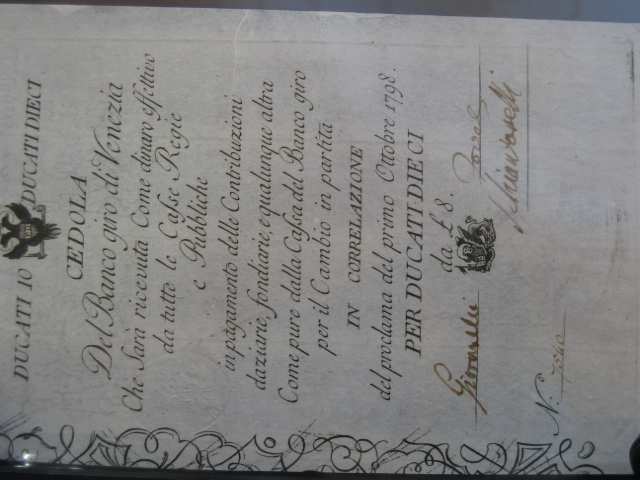 DUCATI 10 DUCATI DIECI
CEDOLA
Del Banco giro di Venezia
Che Sarà ricevuta Come dinaro effettivo
da tutte le Casse Regie
e Pubbliche
in pagamento delle Contribuzioni
daziarie, fondiarie, e qualunque altra
Come pure dalla Cassa del Banco giro
per il Cambio in partita
IN CORRELAZIONE
del proclama del primo Ottobre 1798.
PER DUCATI DIECI
da £ 8.
N.